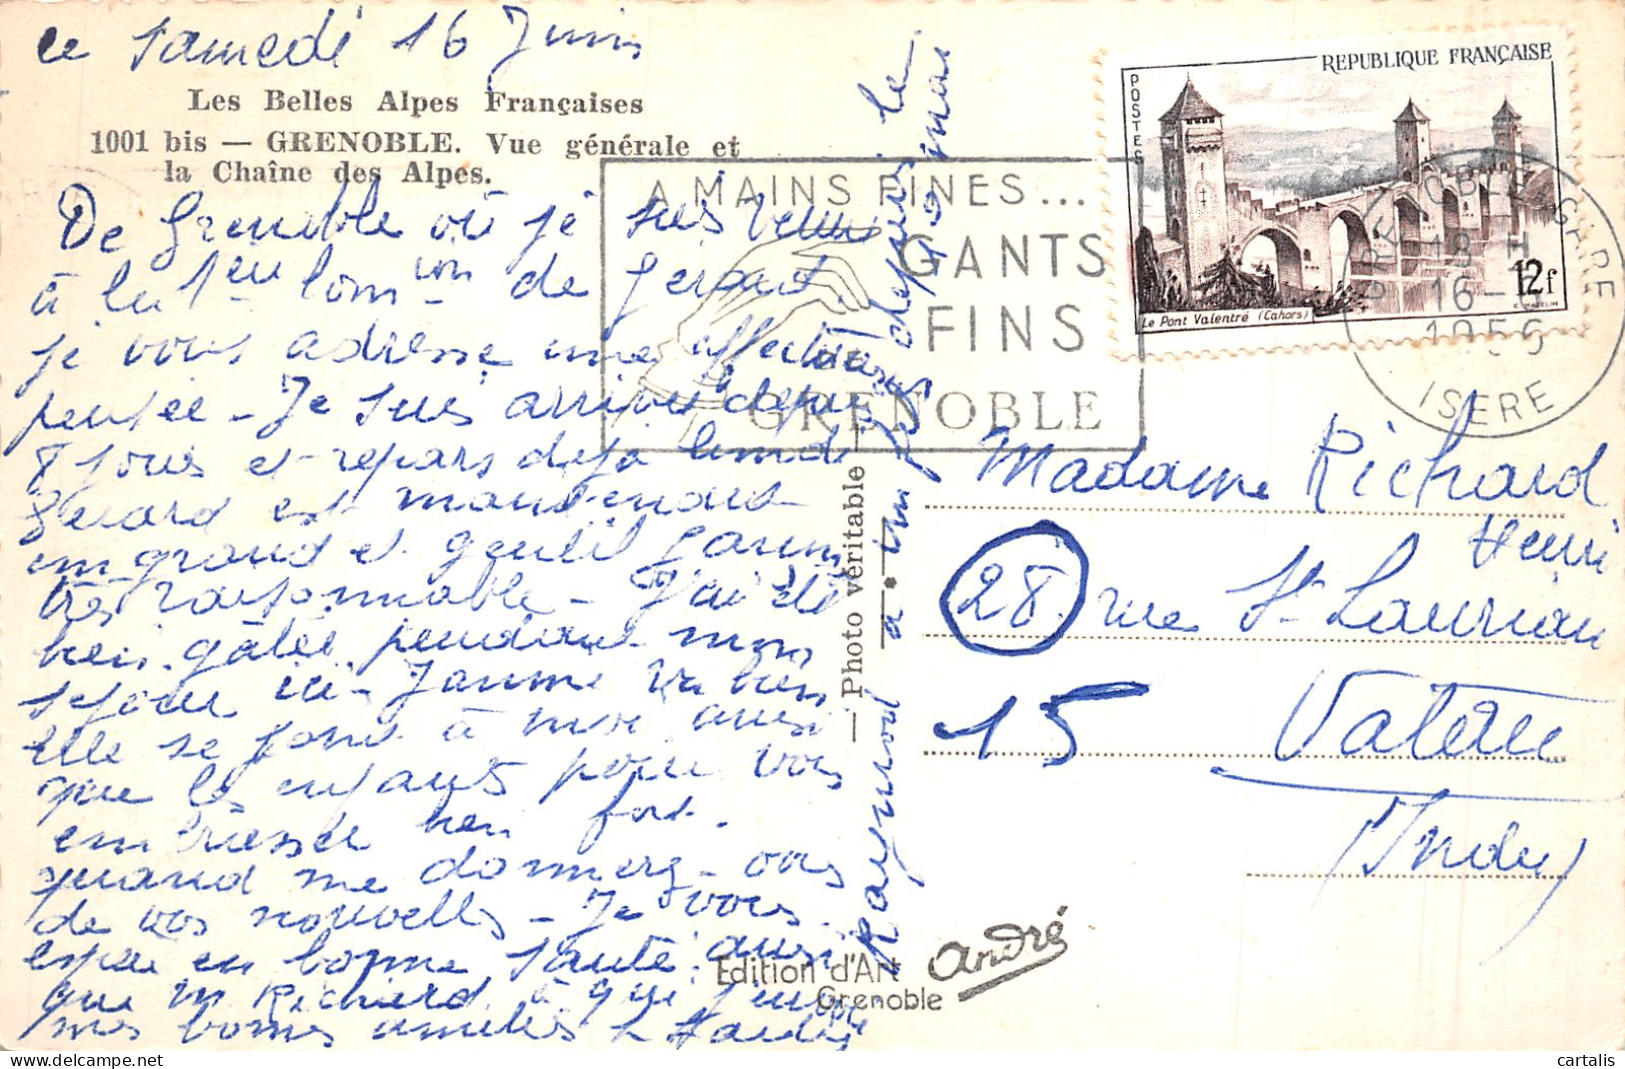 ce Samedi 16 Juin
Les Belles Alpes Françaises
1001 bis — GRENOBLE. Vue générale et
la Chaîne des Alpes.
De Grenoble où je suis venue
à la 1ere Com ion de Gerard.
je vous adresse une affectueuse
pensée - Je suis arrivée depuis
8 jours et repars deja lundi
Gerard est maintenant
un grand et gentil garçon
très raisonnable - J'ai été
bien gâtée pendant mon
sejour ici - va bien
elle se joint à moi ainsi
que les enfants pour vous
embrasser bien fort.
quand me donnerez-vous
de vos nouvelles - Je vous
espère en bonne santé ainsi
que Mr Richard à qui
mes bonnes amitiés
Raymond a un depuis le
— Photo véritable —
A MAINS FINES...
GANTS
FINS
GRENOBLE
REPUBLIQUE FRANÇAISE
POSTES
12f
Le Pont Valentré (Cahors)
GRENOBLE GARE
18 H
16-6
1956
ISERE
Madame Richard
Henri
28 rue St Laurian
15 Vatan
(Indre)
Edition d'Art André
Grenoble
cartalis